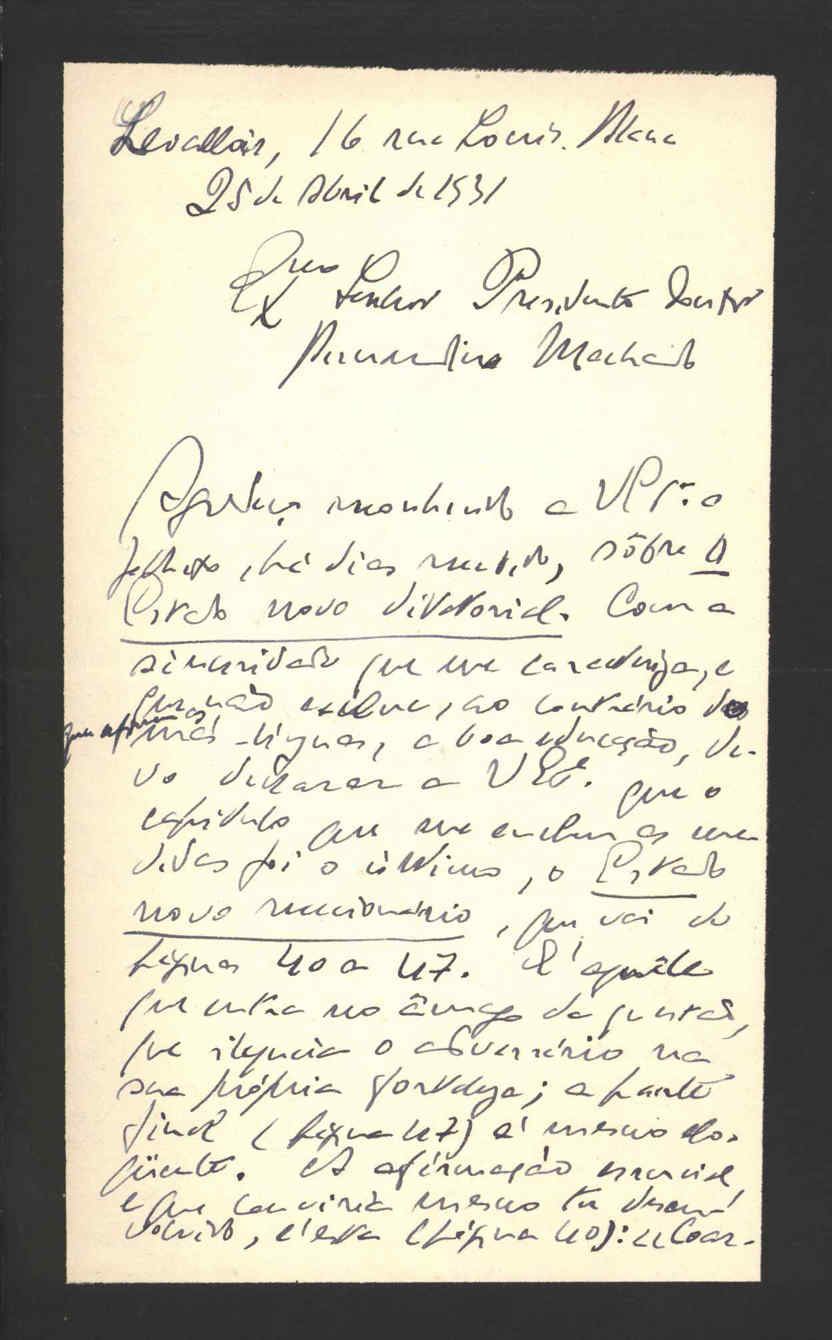 Levallois, 16 rue Louis Blanc
25 de Abril de 1931
Exmo Senhor Presidente Doutor
Bernardino Machado
Agradeço reconhecido a V. Ex.ª o
folheto, há dias recebido, sôbre O
Estado novo ditatorial. Com a
sinceridade que me caracteriza, e
que não exclue, ao contrário do
que afirmam as
más-línguas, a boa educação, de-
vo declarar a V. Ex.ª que o
capítulo que me encheu as me-
didas foi o último, o Estado
novo reaccionário, que vai de
páginas 40 a 47. É aquele
que entra no âmago da questão,
que o adversário na
sua própria fortaleza; a parte
final (página 47) é mesmo elo-
qüente. A afirmação essencial,
e que conviria mesmo ter desen-
volvido, é esta (página 40): «Coar-